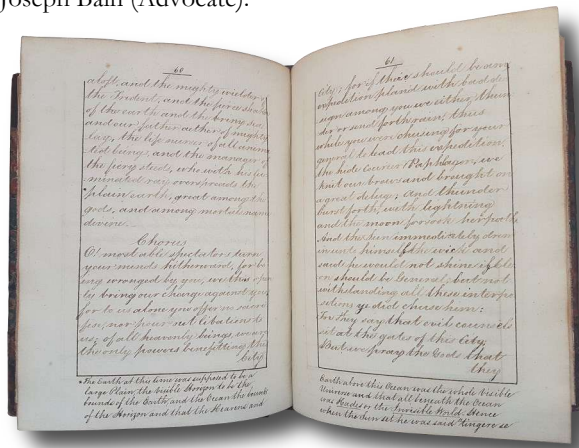 Joseph Bain (Advocate).
60
aloft, and the mighty wielder of
the Trident, and the force shaker
of the earth and the briny sea,
and our father æther of mighty
the life nurse of all anima
ted beings, and the manager of
the fiery steeds, who with his illu
minated rays overspreads the
*plain earth, great amongst the
gods, and among mortals named
divine.
Chorus
O! most able spectators turn
your minds hitherward, for be
ing wronged by you, we this
by bring our charge against you,
for to us alone you offer no sacri
fice, nor pour out libations to
us, of all heavenly beings we are
the only powers benefitting the
City
*The Earth at this time was supposed to be a
large Plain, the visible Horizon to be the
bounds of the Earth, and the Ocean the bounds
of the Horizon and that the Heavens and
61
City, for if there should be any
expedition plan'd with bad de
sign among you we either thun
der or send forth rain, thus
while you were chusing for your
general to lead this expedition,
the hide Currier Paphlagon, we
knit our brows and brought on
a great delay, and thunder
burst forth, with lightning
and the moon forsook her path
And the sun immediately drew
in unto himself the wick and
said he would not shine if Cle
on should be General, but not
withstanding all these interpo
sitions ye did choose him:
For they say that evil councils
set at the gates of this city
But we pray the Gods that
they
Earth above this Ocean was the whole visible
Universe and that all beneath the Ocean
was Hades or the Invisible World. Hence
when the sun set he was said "tingere se